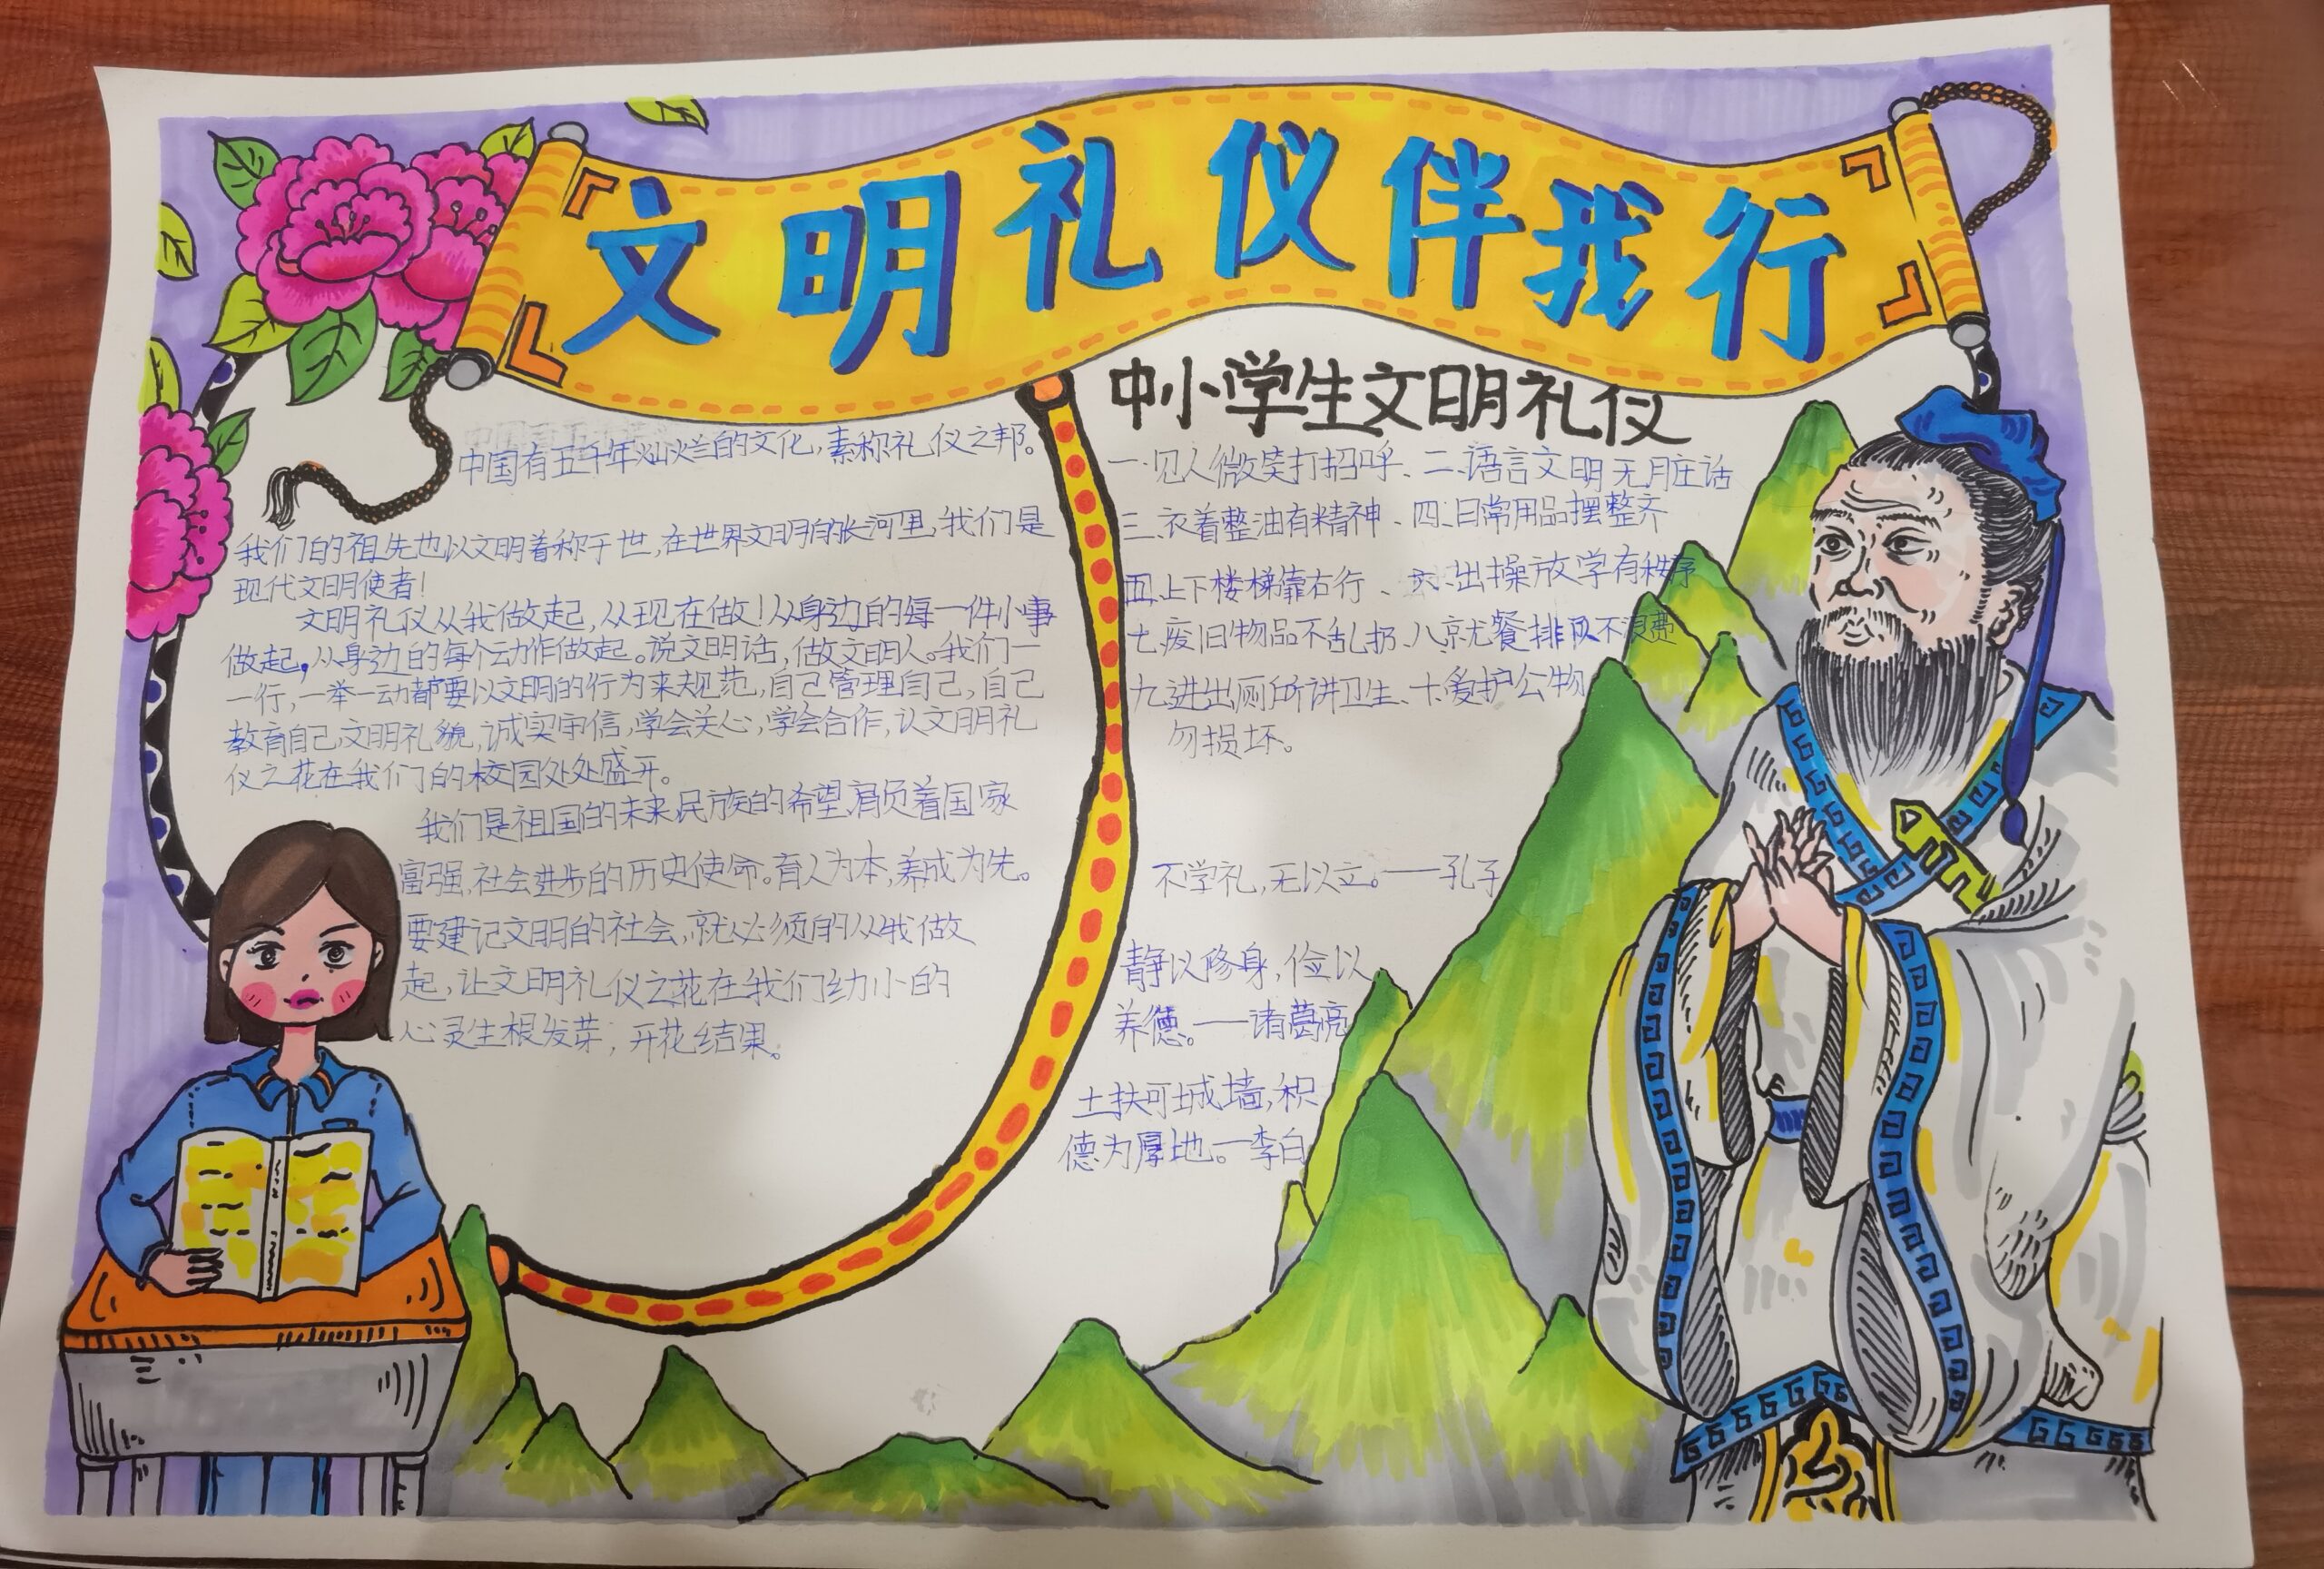 文明礼仪伴我行
中国有五千年灿烂的文化,素称礼仪之邦。
我们的祖先也以文明着称于世,在世界文明的长河里,我们是
现代文明使者!
文明礼仪从我做起,从现在做!从身边的每一件小事
做起,从身边的每个动作做起。说文明话,做文明人。我们一
一行,一举一动都要以文明的行为来规范,自己管理自己,自己
教育自己,文明礼貌,诚实守信,学会关心,学会合作,让文明礼
仪之花在我们的校园处处盛开。
我们是祖国的未来,民族的希望,肩负着国家
富强,社会进步的历史使命。育人为本,养成为先。
要建记文明的社会,就必须的从我做
起,让文明礼仪之花在我们幼小的
心灵生根发芽,开花结果。
中小学生文明礼仪
一.见人微笑打招呼、二.语言文明无脏话
三.衣着整油有精神、四.日常用品摆整齐
五.上下楼梯靠右行、六.出操放学有秩序
七.废旧物品不乱扔.八.就餐排队不浪费
九.进出厕所讲卫生.十.爱护公物
勿损坏。
不学礼,无以立。——孔子
静以修身,俭以
养德。——诸葛亮
土扶可城墙,积
德为厚地。—李白